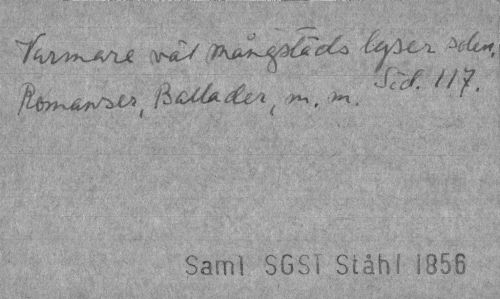 Varmare väl mångstäds lyser solen.
Romanser, Ballader, m. m. Sid. 117.
Saml SGST Ståhl 1856